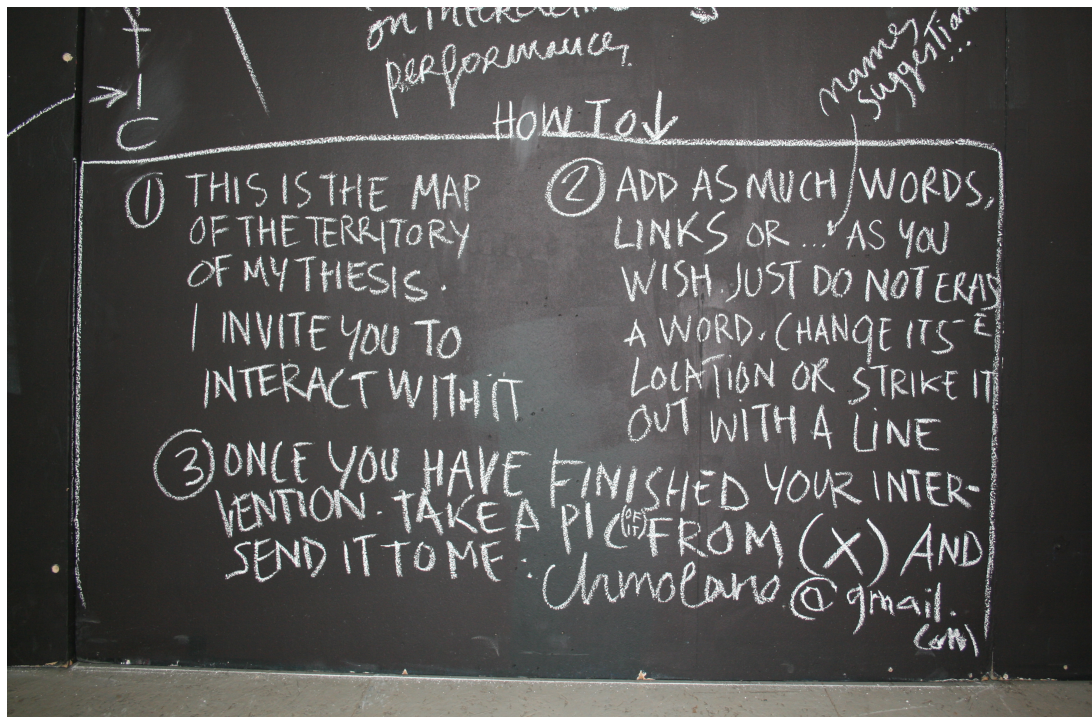 performance
names
suggestion...
C
HOW TO ↓
① THIS IS THE MAP
OF THE TERRITORY
OF MY THESIS.
I INVITE YOU TO
INTERACT WITH IT
② ADD AS MUCH WORDS,
LINKS OR ... AS YOU
WISH. JUST DO NOT ERASE
A WORD. CHANGE ITS
LOCATION OR STRIKE IT
OUT WITH A LINE
③ ONCE YOU HAVE FINISHED YOUR INTER-
VENTION. TAKE A PIC (OF IT) FROM (X) AND
SEND IT TO ME:
@gmail.
com